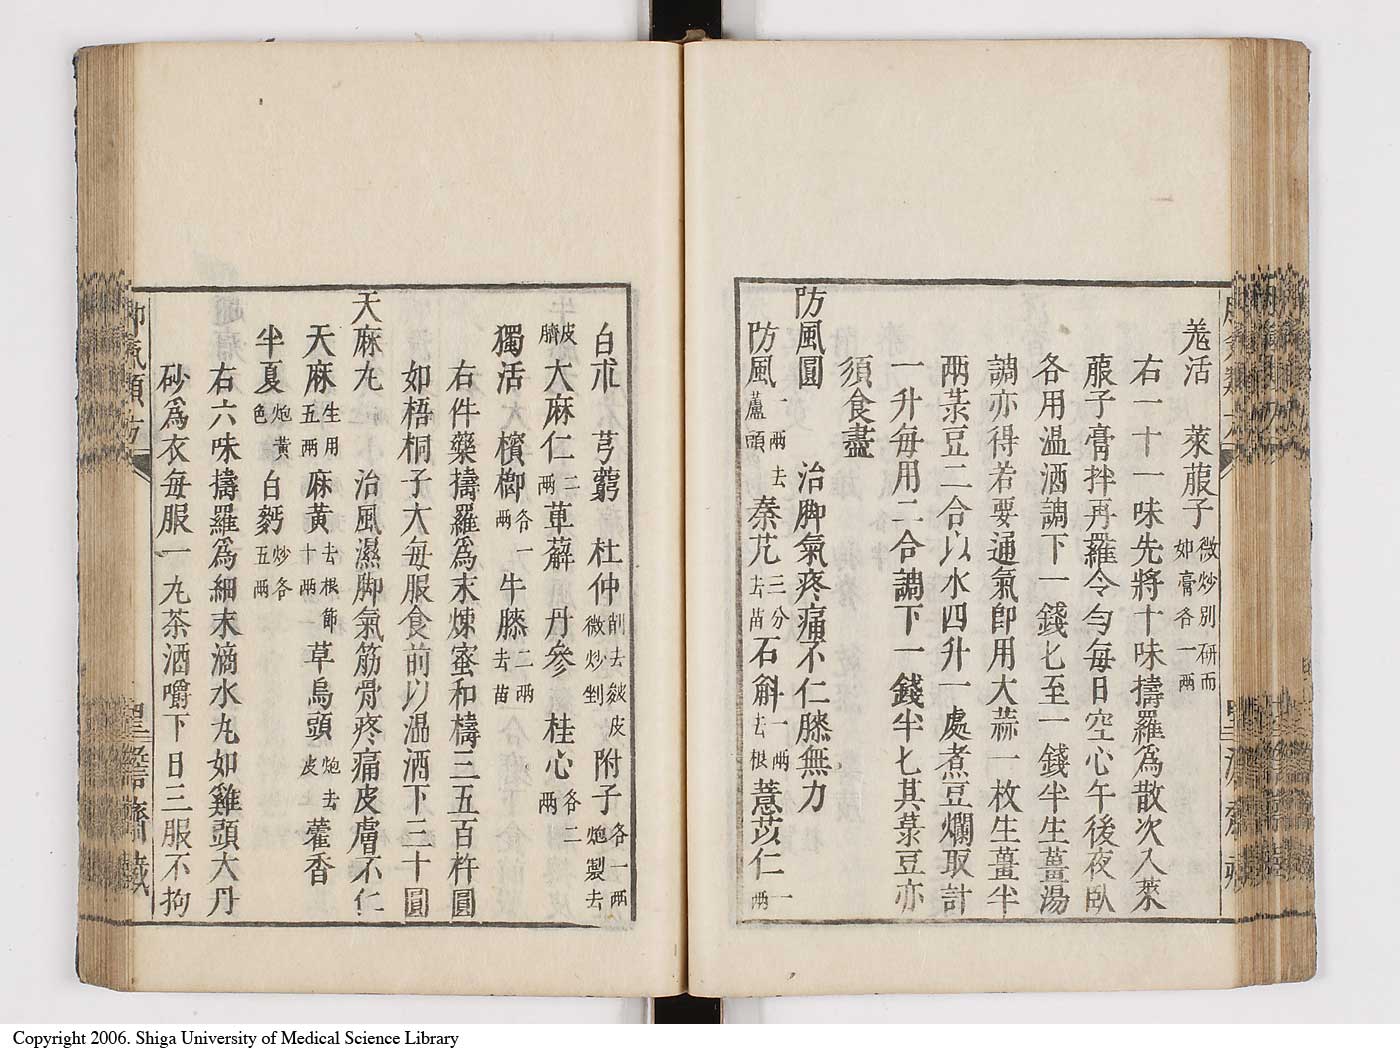 羗活　萊菔子微炒别研而如膏各一兩
右一十一味先將十味擣羅爲散次入萊
菔子膏拌再羅令勻每日空心午後夜臥
各用温酒調下一錢匕至一錢半生薑湯
調亦得若要通氣卽用大蒜一枚生薑半
兩菉豆二合以水四升一處煮豆爛取計
一升每用二合調下一錢半匕其菉豆亦
須食盡
防風圓　治脚氣疼痛不仁膝無力
防風一兩去蘆頭秦艽三分去苗石斛一兩去根薏苡仁一兩
白朮　芎藭　杜仲削去皴皮微炒剉附子各一兩炮製去
皮臍大麻仁二兩萆薢　丹參　桂心各二兩
獨活　大檳榔各一兩牛膝二兩去苗
右件藥擣羅爲末煉蜜和檮三五百杵圓
如梧桐子大每服食前以温酒下三十圓
天麻丸　治風濕脚氣筋骨疼痛皮膚不仁
天麻生用五兩麻黄去根節十兩草烏頭炮去皮藿香
半夏炮黃色白麪炒各五兩
右六味擣羅爲細末滴水丸如雞頭大丹
砂爲衣每服一丸茶酒嚼下日三服不拘
脚氣類方
聿脩齋藏
Copyright 2006. Shiga University of Medical Science Library